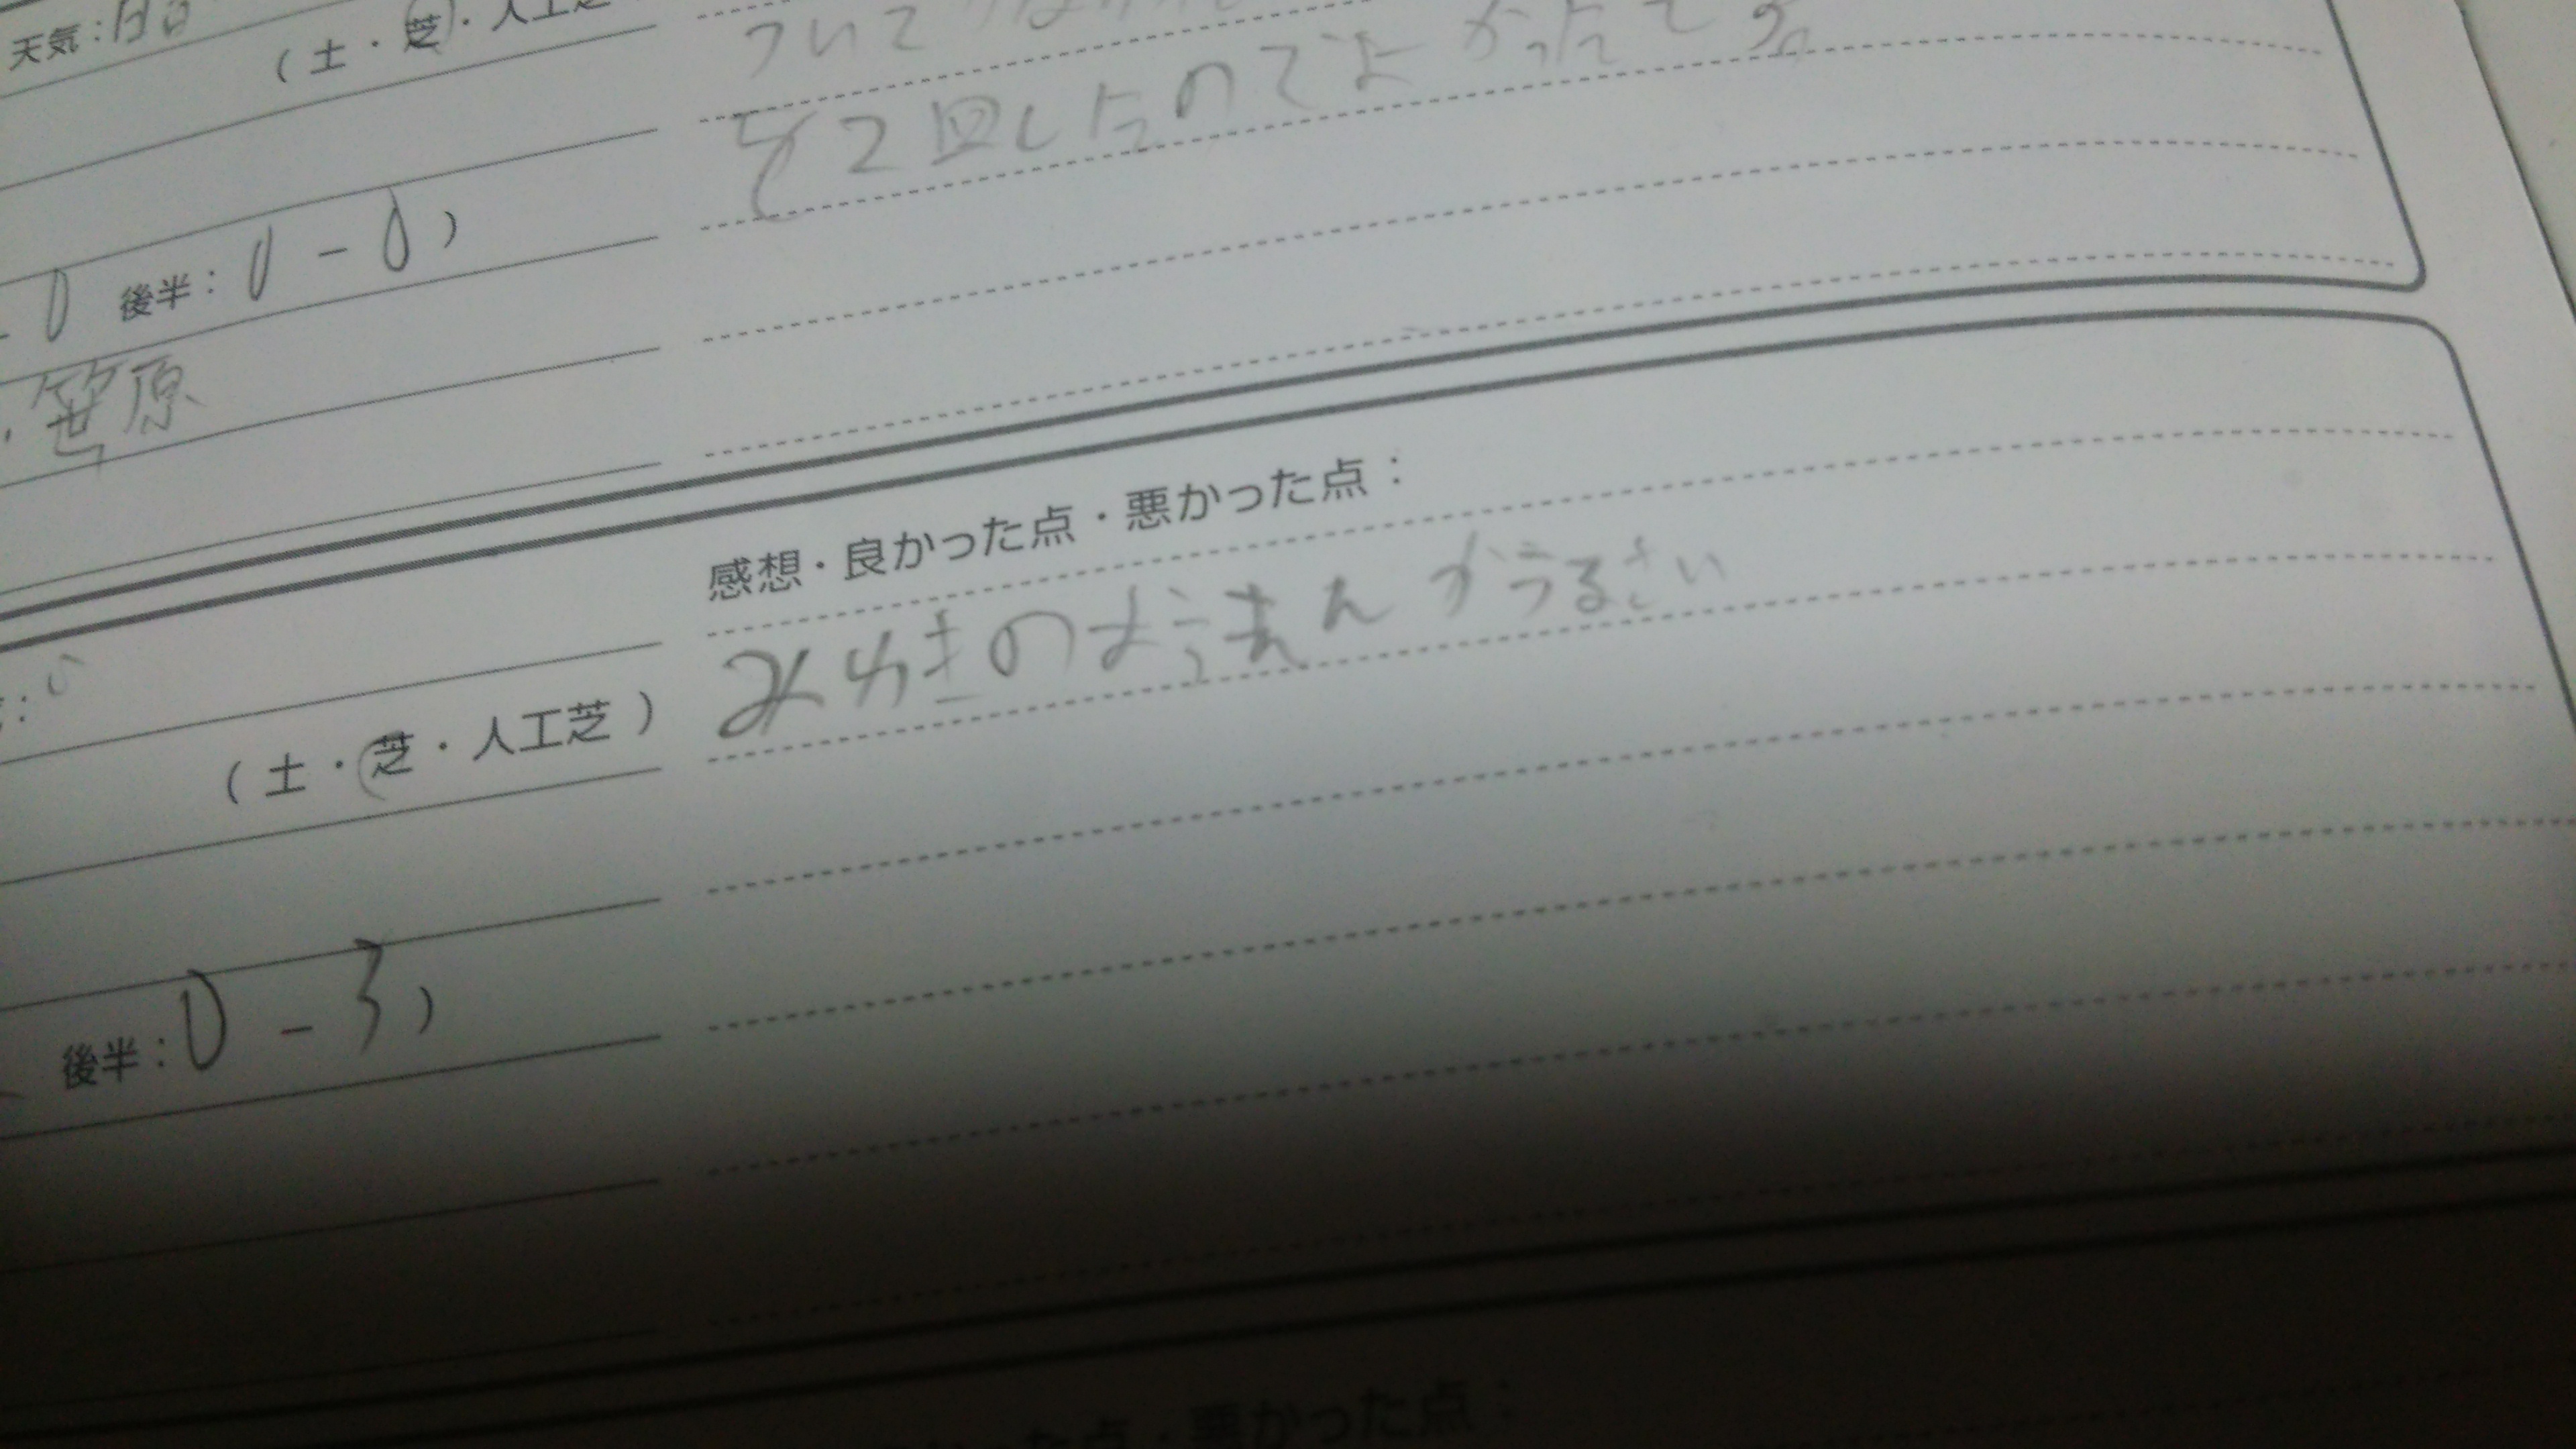 天気:晴
(土・芝・人工芝
ついて
を2回したのでよかったです。
0 後半:0-0)
笹原
感想・良かった点・悪かった点:
みゆきのようまんがうるさい
(土・芝・人工芝)
後半:0-3)
た点・悪かった点: